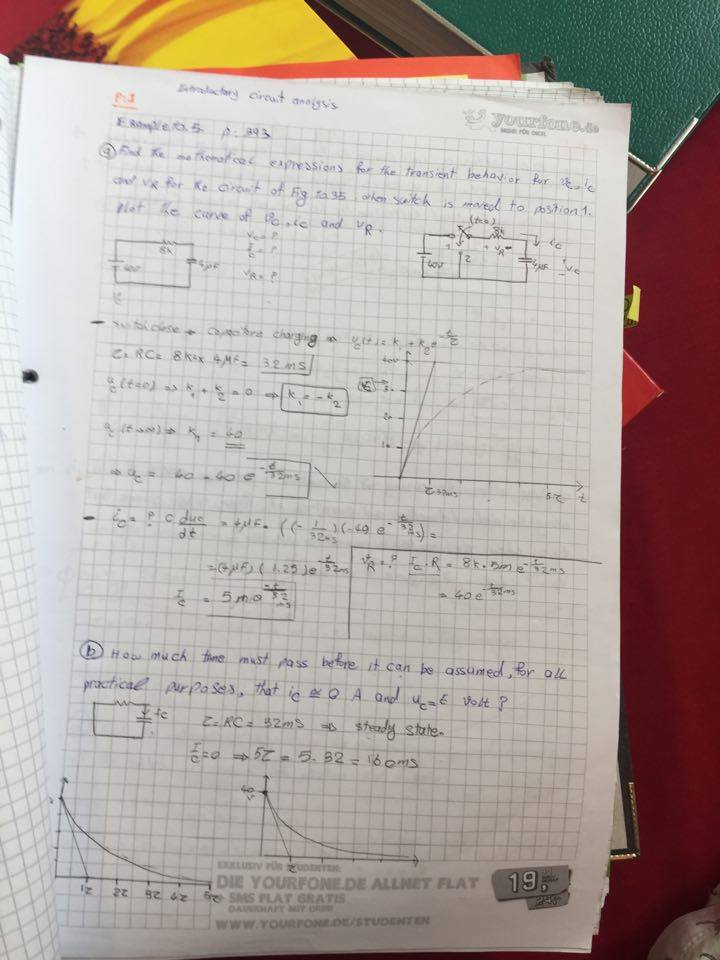 Introductory circuit analysis
P:1
yourfone.de
Example 10.5 p: 393
ⓐ Find the mathematical expressions for the transient behavior for vc, ic
and vR for the circuit of Fig 10.35 when switch is moved to position 1.
plot the curve of vc, ic and vR.
(t=0)
vc = ?
ic = ?
vR = ?
8k
40V
4μF
8k
1
2
+ vR -
ic
40V
4μF
+
vc
-
close → capacitor charging ⇒ uc(t) = k1 + k2 e^-t/τ
τ = RC = 8k × 4μF = 32ms
uc(t=0) ⇒ k1 + k2 = 0 ⇒ k1 = -k2
uc(t→∞) ⇒ k1 = 40
⇒ uc = 40 - 40 e^-t/32ms
τ 32ms
5τ
t
- ic = ? C duc/dt = 4μF · ((-1/32ms)(-40 e^-t/32ms) =
= (4μF)(1.25) e^-t/32ms
ic = 5m e^-t/32ms
vR = ? ic·R = 8k · 5m e^-t/32ms
= 40 e^-t/32ms
ⓑ How much time must pass before it can be assumed, for all
practical purposes, that ic ≅ 0 A and uc = E volt?
ic
τ = RC = 32ms ⇒ steady state.
ic = 0 ⇒ 5τ = 5 · 32 = 160ms
40
τ
1τ 2τ 3τ 4τ 5τ
EXKLUSIV FÜR STUDENTEN:
DIE YOURFONE.DE ALLNET FLAT
+ SMS FLAT GRATIS
DAUERHAFT MIT DRIN!
WWW.YOURFONE.DE/STUDENTEN
19,